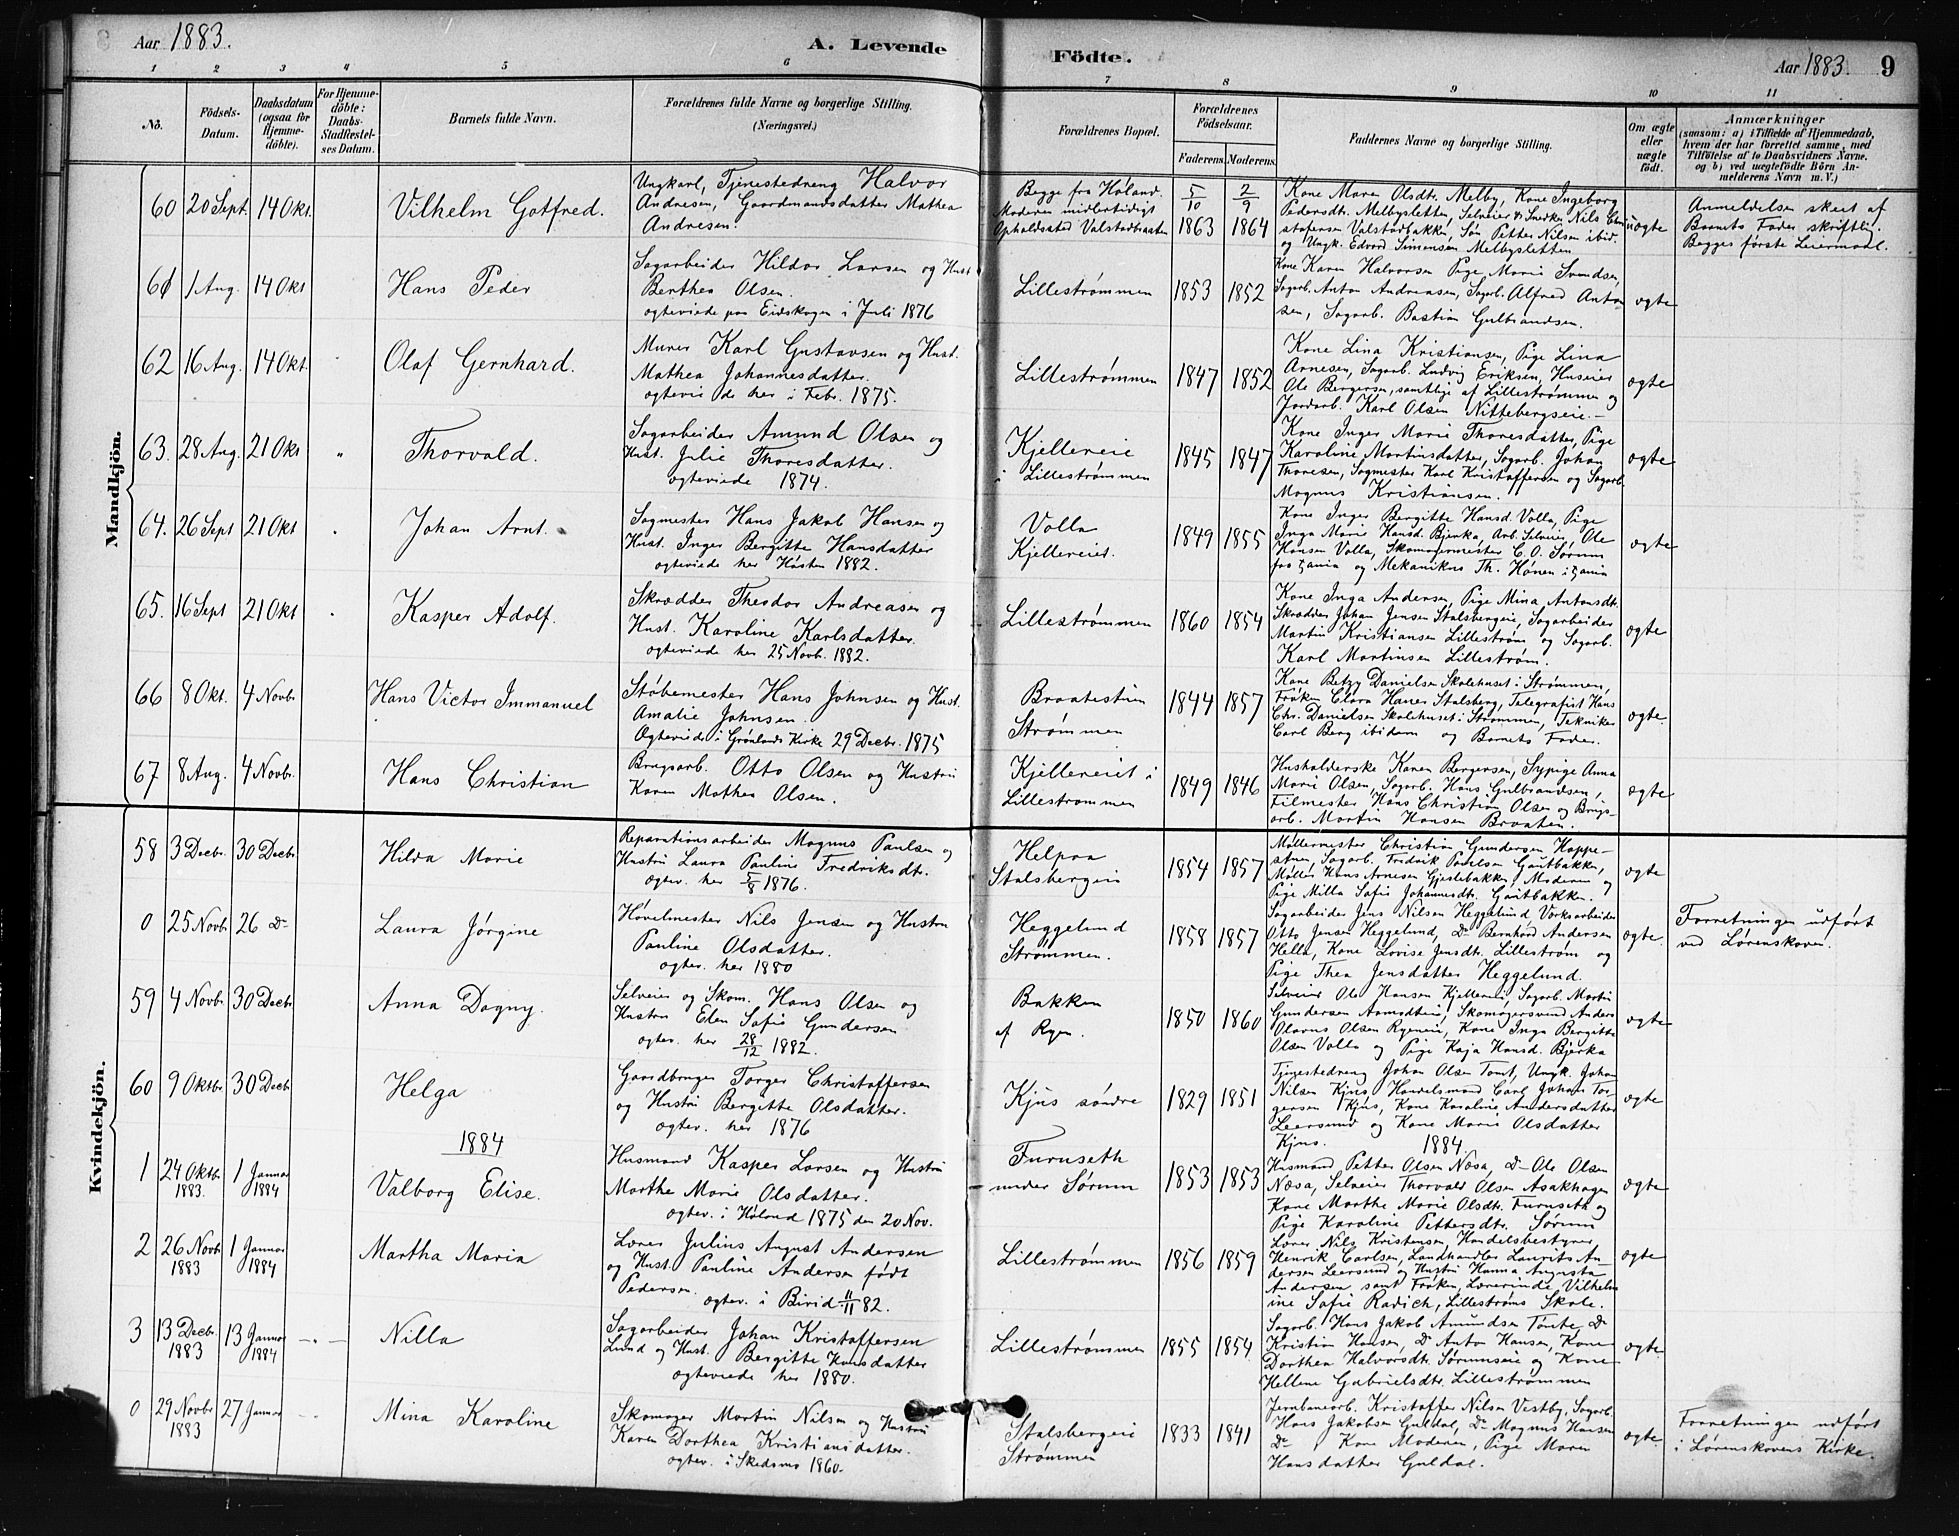 Aar 1883.
A. Levende
Födte.
Aar 1883. 9
1 2 3 4 5 6 7 8 9 10 11
No.
Födsels-Datum.
Daabsdatum (ogsaa for Hjemme-döbte).
For Hjemme-döbte: Daabs-Stadfæstel-ses Datum.
Barnets fulde Navn.
Forældrenes fulde Navne og borgerlige Stilling. (Næringsvei.)
Forældrenes Bopæl.
Forældrenes Födselsaar.
Faderens. Moderens.
Faddernes Navne og borgerlige Stilling.
Om ægte eller uægte födt.
Anmærkninger
(saasom: a) i Tilfælde af Hjemmedaab,
hvem der har forrettet samme, med
Tilföielse af to Daabsvidners Navne.
og b) ved uægtefödte Börn An-
melderens Navn m. V.)
Mandkjön.
60 20 Sept. 14 Okt. Vilhelm Gotfred.
Ungkarl, Tjenestedreng Halvor
Andresen, Gaardmandsdatter Mathea
Andresen.
Begge fra Høland.
Moderen midlertidigt
Opholdssted Valstadbraaten
5/10 1863 2/9 1864
Kone Maren Olsdtr. Melby, Kone Ingeborg
Pedersdtr. Melbysletten, Selveier & Snedker Nils Chri-
stofersen Valstadbakken, Søn Petter Nilsen ibid.
og Ungk. Edvard Simensen Melbysletten
uægte
Anmeldelsen skeet af
Barnets Fader skriftlig.
Begges første Leiermaal.
61 1 Aug. 14 Okt Hans Peder
Sagarbeider Hildor Larsen og Hust
Berthea Olsen.
ægteviede paa Eidskogen i Juli 1876
Lillestrømmen 1853 1852
Kone Karen Halvorsen Pige Marie Svendsen,
Sagarb. Anton Andreasen, Sagarb. Alfred Anton-
sen, Sagarb. Bastian Gulbrandsen.
ægte
62 16 Aug. 14 Okt. Olaf Gernhard.
Murer Karl Gustavsen og Hust.
Mathea Johannesdatter.
ægteviede her i Febr. 1875.
Lillestrømmen 1847 1852
Kone Lina Kristiansen, Pige Lina
Arnesen, Sagarb. Ludvig Eriksen, Huseier
Ole Bergersen, samtlige af Lillestrømmen og
Jordarb. Karl Olsen Nittebergseie.-
ægte
63. 28 Aug. 21 Okt " Thorvald.
Sagarbeider Amund Olsen og
Hust. Julie Thoresdatter.
ægteviede 1874.
Kjellereie
i Lillestrømmen
1845 1847
Kone Inger Marie Thoresdatter, Pige
Karoline Martinsdatter, Sagarb. Johan
Thoresen, Sagmester Karl Kristoffersen og Sagarb.
Magnus Kristiansen.
ægte
64. 26 Sept 21 Okt Johan Arnt.
Sagmester Hans Jakob Hansen og
Hust. Inger Bergitte Hansdatter
ægteviede her Høsten 1882.
Volla
Kjellereiet.
1849 1855
Kone Inger Bergitte Hansd. Volla, Pige
Inga Marie Hansd. Bjerka, Arb. Selveier, Ole
Hansen Volla, Skomagermester C. O. Sørum
fra og Mekanikus Th. Hønen i
ægte
65. 16 Sept 21 Okt Kasper Adolf.
Skrædder Theodor Andreasen og
Hust. Karoline Karlsdatter.
ægteviede her 25 Novb. 1882.
Lillestrømmen 1860 1854
Kone Inga Andersen, Pige Mina Antonsdtr.
Skrædder Johan Jensen Stalsbergeie, Sagarbeider
Martin Kristiansen Lillestrøm og Sagarb.
Karl Martinsen Lillestrøm.
ægte
66 8 Okt. 4 Novbr Hans Victor Immanuel
Støbemester Hans Johnsen og Hust.
Amalie Johnsen.
Ægteviede i Grønlands Kirke 29 Decbr. 1875
Braatestuen
Strømmen
1844 1857
Kone Betzy Danielsen Skolehuset i Strømmen,
Frøken Clara Hanes Stalsberg, Telegrafist Hans
Chr. Danielsen Skolehuset i Strømmen, Tekniker
Carl Berg ibidem og Barnets Fader.
ægte.
67 8 Aug. 4 Novbr. Hans Christian
Brugsarb. Otto Olsen og Hustru
Karen Mathea Olsen.
Kjellereiet i
Lillestrømmen
1849 1846
Husholderske Karen Bergersen, Sypige Anna
Marie Olsen, Sagarb. Hans Gulbrandsen,
Filmester Hans Christian Olsen og Brugs-
arb. Martin Hansen Braaten.
ægte
Kvindekjön.
58 3 Decbr. 30 Decbr Hilda Marie
Reparationsarbeider Magnus Paulsen og
Hustru Laura Pauline Fredriksdtr.
ægtev. her 5/8 1876.
Helpaa
Stalsbergeie
1854 1857
Møllermester Christian Gundersen Hoppe-
stuen, Sagarb. Fredrik Poulsen Gautbakken,
Møller Hans Arnesen Gjestebakken, Moderen og
Pige Milla Sofie Johannesdtr. Gautbakken.
ægte
0 25 Novb. 26 D- Laura Jørgine
Høvelmester Nils Jensen og Hustru
Pauline Olsdatter.
ægtev. her 1880
Heggelund
Strømmen.
1858 1857
Sagarbeider Jens Nilsen Heggelund, Værksarbeider
Otto Jensen Heggelund, D- Bernhard Andersen
Hella, Kone Lovise Jensdtr. Lillestrøm og
Pige Thea Jensdatter Heggelund.
ægte.
Forretningen udført
ved Lørenskoven.
59 4 Novbr 30 Decbr Anna Dagny.
Selveier og Skom. Hans Olsen og
Hustru Elen Sofie Gundersen
ægtev. her 28/12 1882.
Bakken
af Ryen.
1850 1860
Selveier Ole Hansen Kjellereie, Sagarb. Martin
Gundersen Aamodteie, Skomagersvend Anders
Olavus Olsen Ryeneie, Kone Inga Bergitte
Olsen Volla og Pige Kaja Hansd. Bjerka
ægte
60 9 Oktbr 30 Decbr Helga
Gaardbruger Torger Christoffersen
og Hustru Bergitte Olsdatter.
ægtev. her 1876
Kjus søndre 1829 1851
Tjenestedreng Johan Olsen Tomt, Ungk. Johan
Nilsen Kjus, Handelsmand Carl Johan Tor-
gersen Kjus, Kone Karoline Andersdatter
Leersund og Kone Marie Olsdatter
Kjus.
ægte
1884
1884.
1 24 Oktbr 1883. 1 Januar 1884 Valborg Elise.
Husmand Kasper Larsen og Hustru
Marthe Marie Olsdatter.
ægtev. i Høland 1875 den 20 Nov.
Furuseth
under Sørum
1853 1853
Husmand Petter Olsen Næsa, D- Ole Olsen
Næsa, Selveier Thorvald Olsen Asakhagen
Kone Marthe Marie Olsdtr. Furuseth og
Pige Karoline Pettersdtr. Sørum
ægte
2 26 Novb. 1883 1 Januar 1884 Martha Maria
Lærer Julius August Andersen
og Hust. Pauline Andersen født
Pedersen. ægtev. i Birid 11/11 82.
Lillestrømmen 1856 1859
Lærer Nils Kristensen, Handelsbestyrer
Henrik Carlsen, Landhandler Laurits An-
dersen Leersund og Hustru Hanna Augusta
Andersen samt Frøken, Lærerinde Vilhelm
ine Sofie Radich, Lillestrøms Skole.
ægte
3 13 Decbr. 1883 13 Januar 1884 Nilla
Sagarbeider Johan Kristoffersen
Lund og Hust. Bergitte Hansdatter
ægteviede her 1880.
Lillestrømmen 1855 1854
Sagarb. Hans Jakob Amundsen Tæite, D-
Kristian Hansen, D- Anton Hansen, Kone
Dorthea Halvorsdtr. Sørumseie og Kone
Hellene Gabrielsdtr. Lillestrømmen
ægte.
0 29 Novbr 1883 27 Januar Mina Karoline
Skomager Martin Nilsen og Hustru
Karen Dorthea Kristiansdatter.
ægtev. i Skedsmo 1860.
Stalsbergeie
Strømmen
1833 1841
Jernbanearb. Kristoffer Nilsen Vestby, Sagarb.
Hans Jakobsen Guldal, D- Magnus Hansen
D- Kone Moderen, Pige Maren
Hansdatter Guldal.
ægte.
Forretningen udført
i Lørenskovens Kirke.